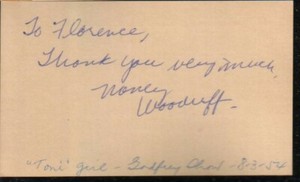 To Florence,
Thank you very much,
Nancy
Woodruff.
"Toni" girl - Godfrey Show - 8-3-54